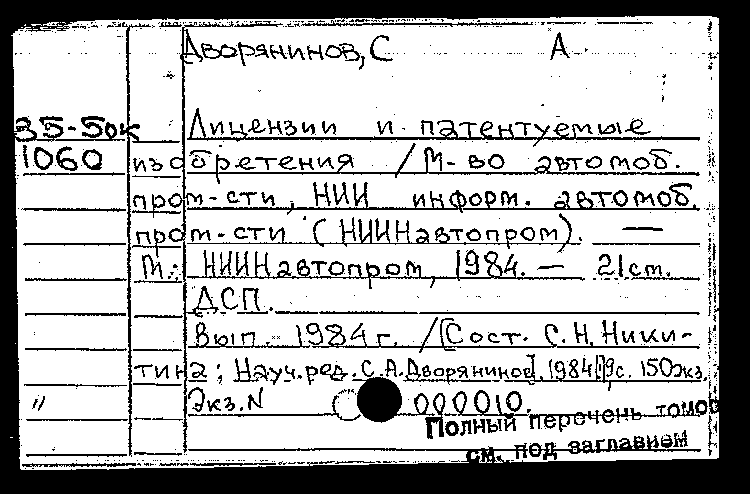 Дворянинов, С А
35-5ок Лицензии и патентуемые
1060 изобретения / М-во автомоб.
пром-сти, НИИ информ. автомоб.
пром-сти (НИИНавтопром). —
М.: НИИНавтопром, 1984. — 21см.
ДСП.
Вып. 1984 г. / [Сост. С.Н. Ники-
тина; Науч.ред. С.А.Дворянинов]. 1984. 9с. 150экз.
" Экз.N 000010.
Полный перечень томов
см. под заглавием